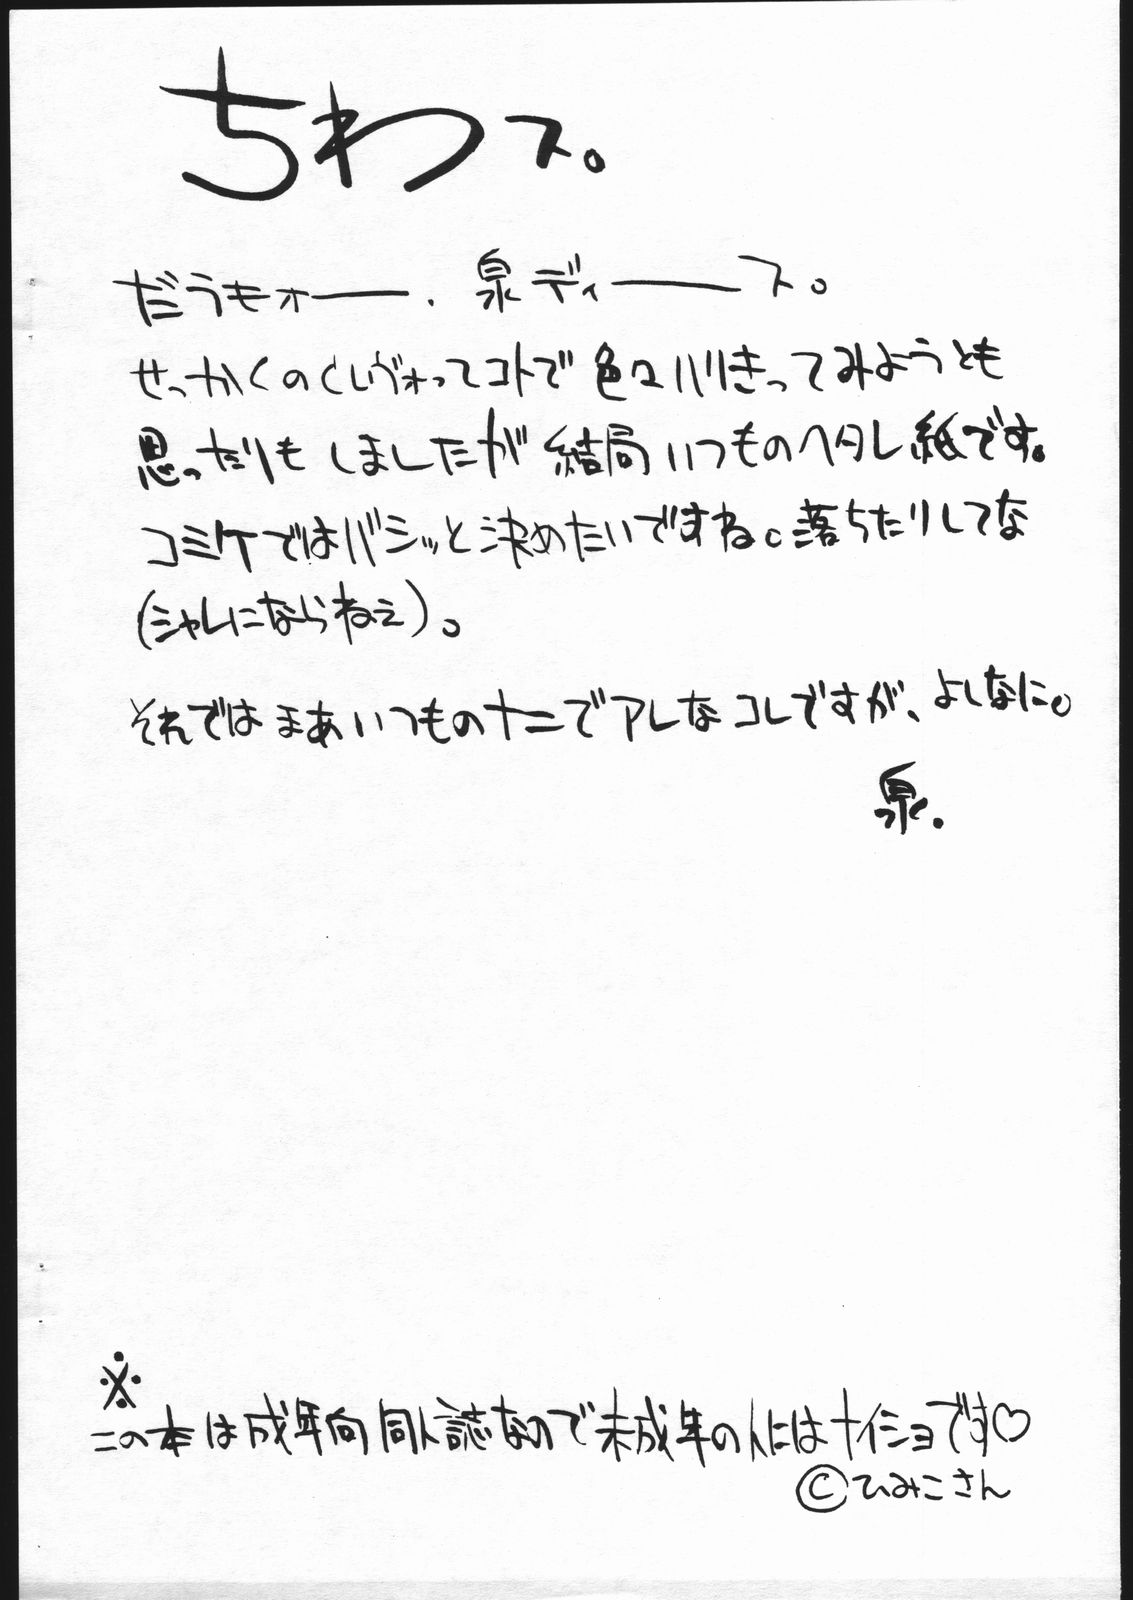 ちわス。
だうもォー、泉ディース。
せっかくのくしヴォってコトで色々ハリきってみようとも
思っだりもしましたが結局いつものヘタレ紙です。
コミケではバシッと決めたいですね。落ちたりしてな
(シャレにならねえ)。
それではまあいつもの十二でアレなコレですが、よしなに。
泉.
※
この本は成年向同人誌なので未成年の人にはナイショです♡
©ひみこさん